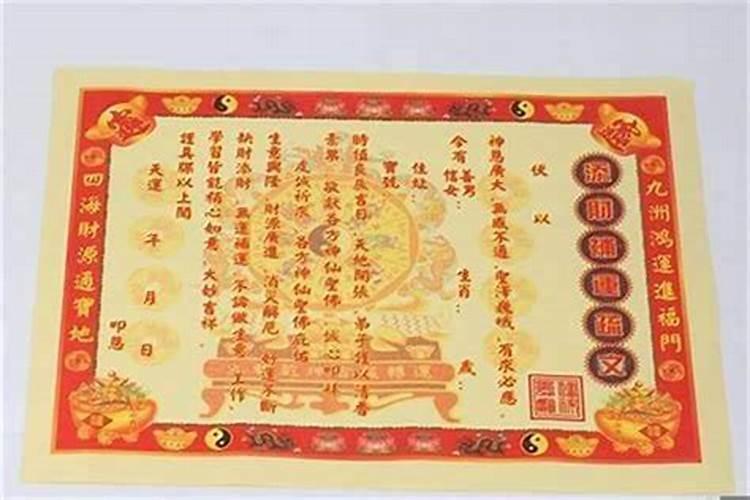 九洲鴻運進福門
添財補運疏文
伏以
神恩廣大 無感不通 聖澤巍峨 有求必應
今有善男
信女
生肖
歲
住址
寶號
時值良辰吉日 天地開張 弟子僅以清香
素果 敬献各方神仙聖佛 誠心叩拜
虔誠祈求 各方神仙聖佛庇佑
生意興隆 財源廣進 消災解厄 好運不斷
缺財添財 無運補運 不論做生意 工作、
學習皆能稱心如意 大妙吉祥
謹具疏以上聞
天運
年
月
日
叩恳
四海財源通寶地